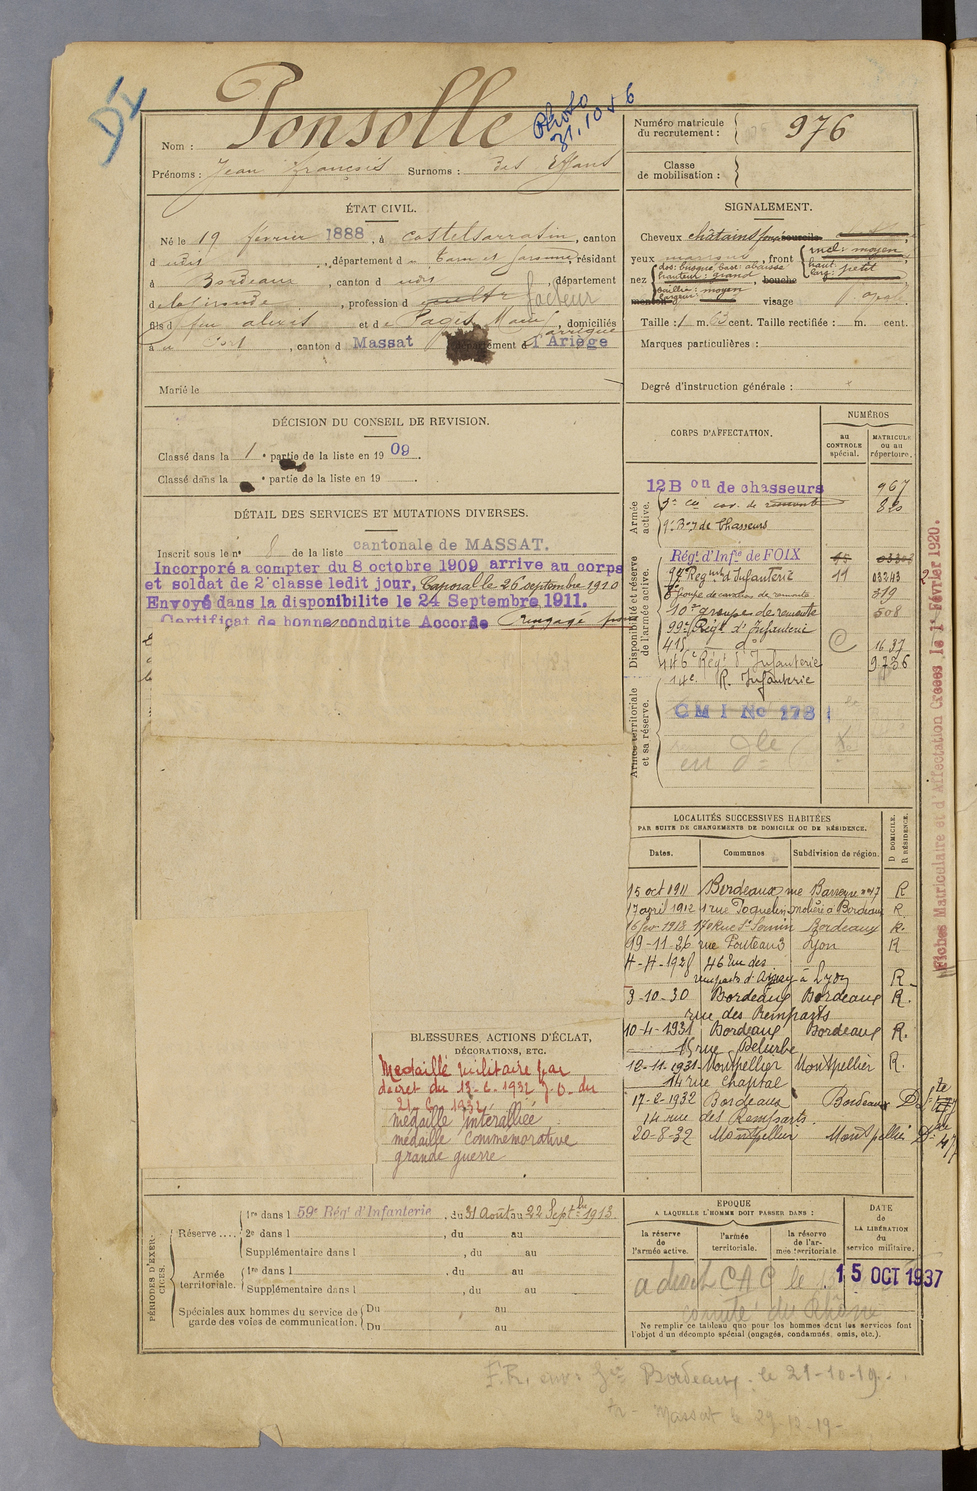 Dx
Photo
31.10.46
Nom : Ponsolle
Prénoms : Jean François Surnoms :
Numéro matricule
du recrutement : 976
Classe
de mobilisation :
ÉTAT CIVIL.
Né le 19 février 1888, à Castelsarrasin, canton
dudit, département du Tarn et Garonne, résidant
à Bordeaux, canton dudit, département
de la Gironde, profession de facteur
fils de feu Alexis et de Pagès Marie, domiciliés
à, canton d Massat, département d l'Ariège
Marié le
SIGNALEMENT.
Cheveux châtains foncé sourcils
yeux, front incl: moyen
haut
larg: petit
nez dos: busqué, base: abaissée
hauteur: grand bouche
saillie: moyen
largeur:
menton visage ovale
Taille : 1 m. 63 cent. Taille rectifiée : m. cent.
Marques particulières :
Degré d'instruction générale :
DÉCISION DU CONSEIL DE REVISION.
Classé dans la 1e partie de la liste en 1909.
Classé dans la e partie de la liste en 19
DÉTAIL DES SERVICES ET MUTATIONS DIVERSES.
Inscrit sous le n° 8 de la liste cantonale de MASSAT.
Incorporé a compter du 8 octobre 1909 arrive au corps
et soldat de 2e classe ledit jour, Caporal le 26 septembre 1910
Envoyé dans la disponibilite le 24 Septembre 1911.
Certificat de bonne conduite Accordé
CORPS D'AFFECTATION.
NUMÉROS
au
CONTROLE
spécial.
MATRICULE
ou au
répertoire.
Armée
active.
12 Bon de chasseurs 967
7e cie cav. de remonte 820
9e Bon de Chasseurs
Disponibilité et réserve
de l'armée active.
Régt d'Infie de FOIX
Regiment d'Infanterie 11 03343
groupe de cavaliers de remonte 319
10e groupe de remonte 508
99e Régt d'Infanterie
415 d° C 1637
446e Régt d'Infanterie 9.736
14e R. Infanterie
Armée territoriale
et sa réserve.
CMI No 178
Fiches Matriculaire et d'Affectation Créées le 1er Février 1920.
LOCALITÉS SUCCESSIVES HABITÉES
PAR SUITE DE CHANGEMENTS DE DOMICILE OU DE RÉSIDENCE.
Dates. Communes Subdivision de région. D DOMICILE. R RÉSIDENCE.
15 oct 1911 Bordeaux rue Barreyre n° 7 R
17 avril 1912 1 rue Poquelin Molière à Bordeaux R
16 fév. 1918 170 Rue St Sernin Bordeaux R.
19-11-26 rue Lyon R
4-4-1928 46 Rue des
remparts d'Ainay à Lyon R
9-10-30 Bordeaux Bordeaux R.
rue des Remparts
10-4-1931 Bordeaux Bordeaux R.
15 rue Delurbe
12-11-1931 Montpellier Montpellier R.
14 rue Chaptal
17-2-1932 Bordeaux Bordeaux D
14 rue des Remparts.
20-8-32 Montpellier Montpellier D
BLESSURES, ACTIONS D'ÉCLAT,
DÉCORATIONS, ETC.
Médaillé militaire par
décret du 18-6-1932 J.O. du
21-6-1932
médaille interalliée
médaille commémorative
grande guerre
PÉRIODES D'EXERCICES.
Réserve.... 1re dans l 59e Régt d'Infanterie, du 31 Août au 22 Septbre 1913.
2e dans l, du au
Supplémentaire dans l, du au
Armée
territoriale. 1re dans l, du au
Supplémentaire dans l, du au
Spéciales aux hommes du service de
garde des voies de communication. Du au
Du au
EPOQUE
A LAQUELLE L'HOMME DOIT PASSER DANS :
la réserve
de
l'armée active.
l'armée
territoriale.
la réserve
de l'ar-
mée territoriale
DATE
de
LA LIBÉRATION
du
service militaire.
15 OCT 1937
du Rhône
Ne remplir ce tableau que pour les hommes dont les services font
l'objet d'un décompte spécial (engagés, condamnés, omis, etc.).
F.R. env. Bordeaux le 21-10-19.
Massat le 29-12-19-